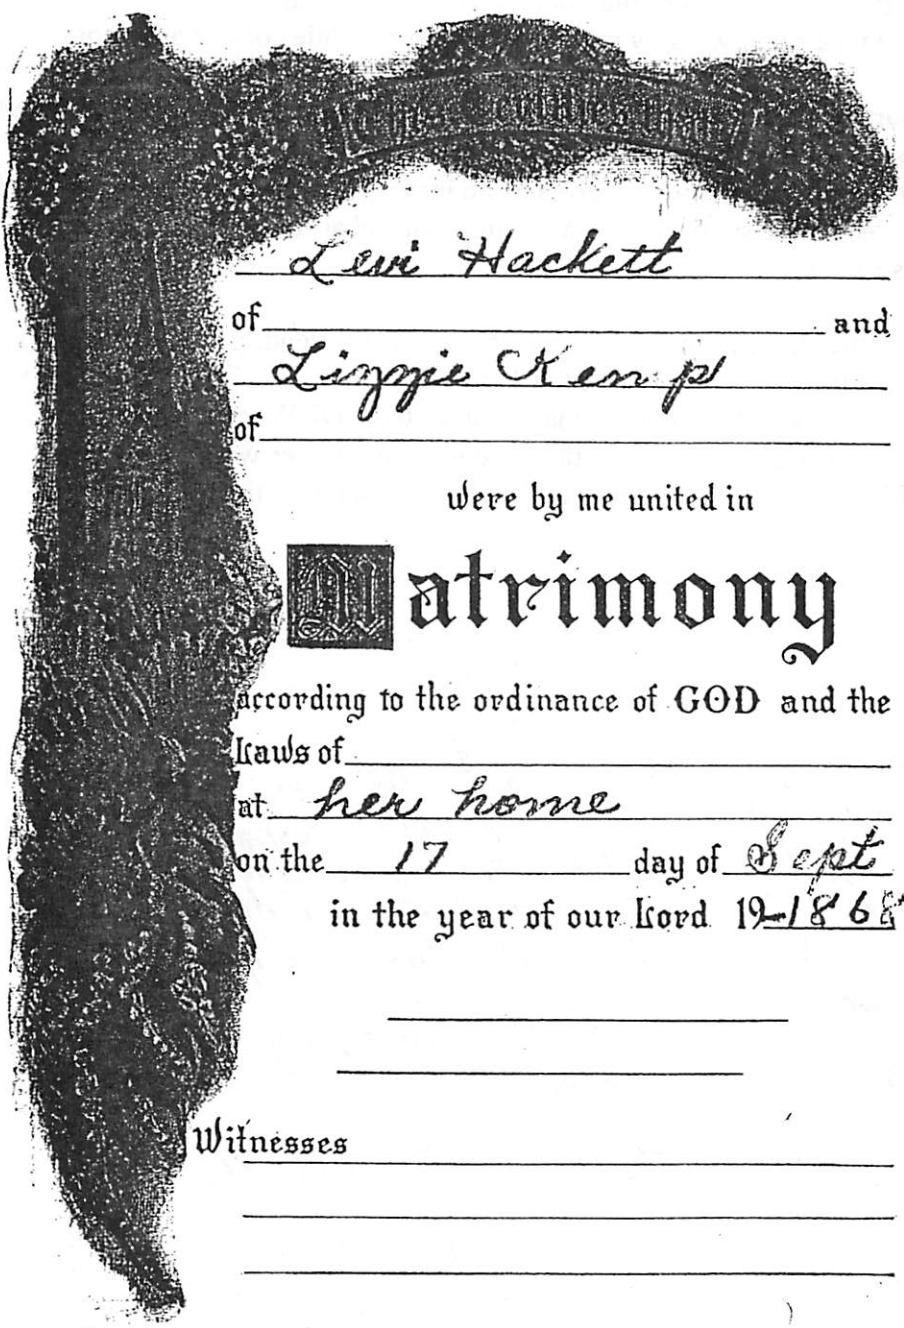 This Certifies that
Levi Hackett
of and
Lizzie Kemp
of
were by me united in
Matrimony
according to the ordinance of GOD and the
Laws of
at her home
on the 17 day of Sept
in the year of our Lord 19-1868
Witnesses